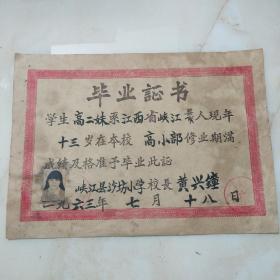 毕业証书
学生高二妹系江西省峡江县人现年
十三岁在本校高小部修业期满
成绩及格准予毕业此証
峡江县沙坊小学校長黄兴鐘
一九六三年七月十八日